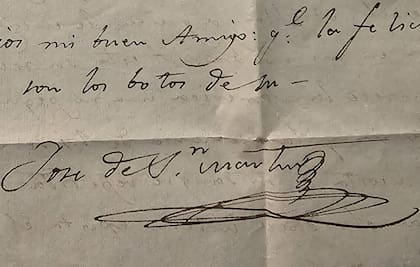 ios mi buen Amigo: q.e la felic
son los botos de su —
José de S.n Martin